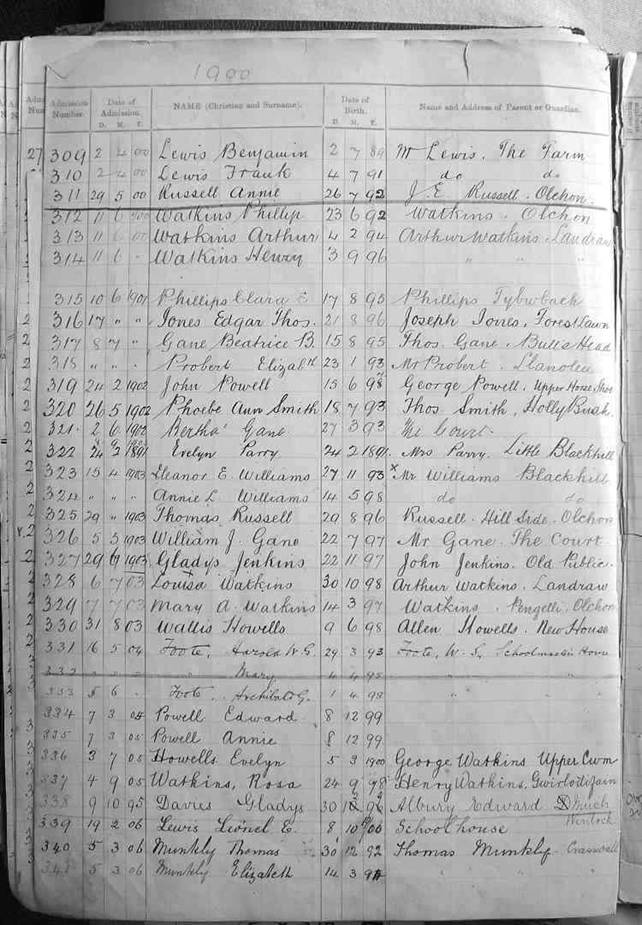 1900
Admission Number. Date of Admission. D. M. Y. NAME (Christian and Surname). Date of Birth. D. M. Y. Name and Address of Parent or Guardian.
309 2 4 00 Lewis Benjamin 2 7 89 Mr Lewis. The Farm
310 2 4 00 Lewis Frank 4 7 91 do do
311 29 5 00 Russell Annie 26 7 92 J. E. Russell. Olchon.
312 11 6 00 Watkins Phillip 23 6 92 Watkins. Olchon
313 11 6 00 Watkins Arthur 4 2 94 Arthur Watkins. Landraw
314 11 6 " Watkins Henry 3 9 96 " " "
315 10 6 1901 Phillips Clara E 17 8 95 Phillips Tybwbach
316 17 " " Jones Edgar Thos. 21 8 96 Joseph Jones, Forest Lawn
317 8 7 " Gane Beatrice B. 15 8 95 Thos. Gane. Bulls Head
318 " " . Probert Elizabth 23 1 93 Mr Probert. Llanolee
319 24 2 1902 John Powell 15 6 98 George Powell. Upper House
320 26 5 1902 Phoebe Ann Smith 18 7 93 Thos Smith, Holly Bush.
321. 2 6 1902 Bertha Gane 27 3 93 The Court.
322 Evelyn Parry 24 2 1891. Mrs Parry. Little Blackhill
323 15 4 1903 Eleanor E. Williams 27 11 93 x Mr Williams Blackhill
324 " " " Annie L Williams 14 5 98 do do
325 29 " 1903 Thomas Russell 29 8 96 Russell. Hill Side. Olchon
326 5 5 1903 William J. Gane 22 7 97 Mr Gane. The Court.
327 29 6 1903 Gladys Jenkins 22 11 97 John Jenkins. Old Public.
328 6 7 03 Louisa Watkins 30 10 98 Arthur Watkins. Landraw
329 7 7 03 Mary A. Watkins 14 3 97 Watkins. Pengelli. Olchon
330 31 8 03 Wallis Howells 9 6 98 Allen Howells. New House
331 16 5 04 Foote, Harold W G. 29 3 93 Foote, W. S, Schoolmaster's House
332 " Mary 4 4 95 " "
333 5 6 . Foote. Archibald G. 1 4 98 " "
334 7 3 05 Powell Edward 8 12 99
335 7 3 05 Powell Annie 8 12 99
336 3 7 05 Howells Evelyn 5 3 1900 George Watkins Upper Cwm
337 4 9 05 Watkins, Rosa 24 9 98 Henry Watkins,
338 9 10 95 Davies Gladys 30 12 96 Albury Edward Much Wenlock
339 19 2 06 Lewis Lionel E. 8 10 00 Schoolhouse
340 5 3 06 Munkly Thomas 30 12 92 Thomas Munkly. Craswall
341 5 3 06 Munkly Elizabeth 14 3 98